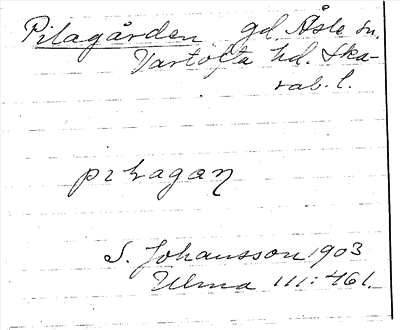 Pilagården gd. Åsle sn.
Vartofta hd. Ska-
rab. l.
pilagaṇ
S. Johansson 1903
Ulma 111:461.